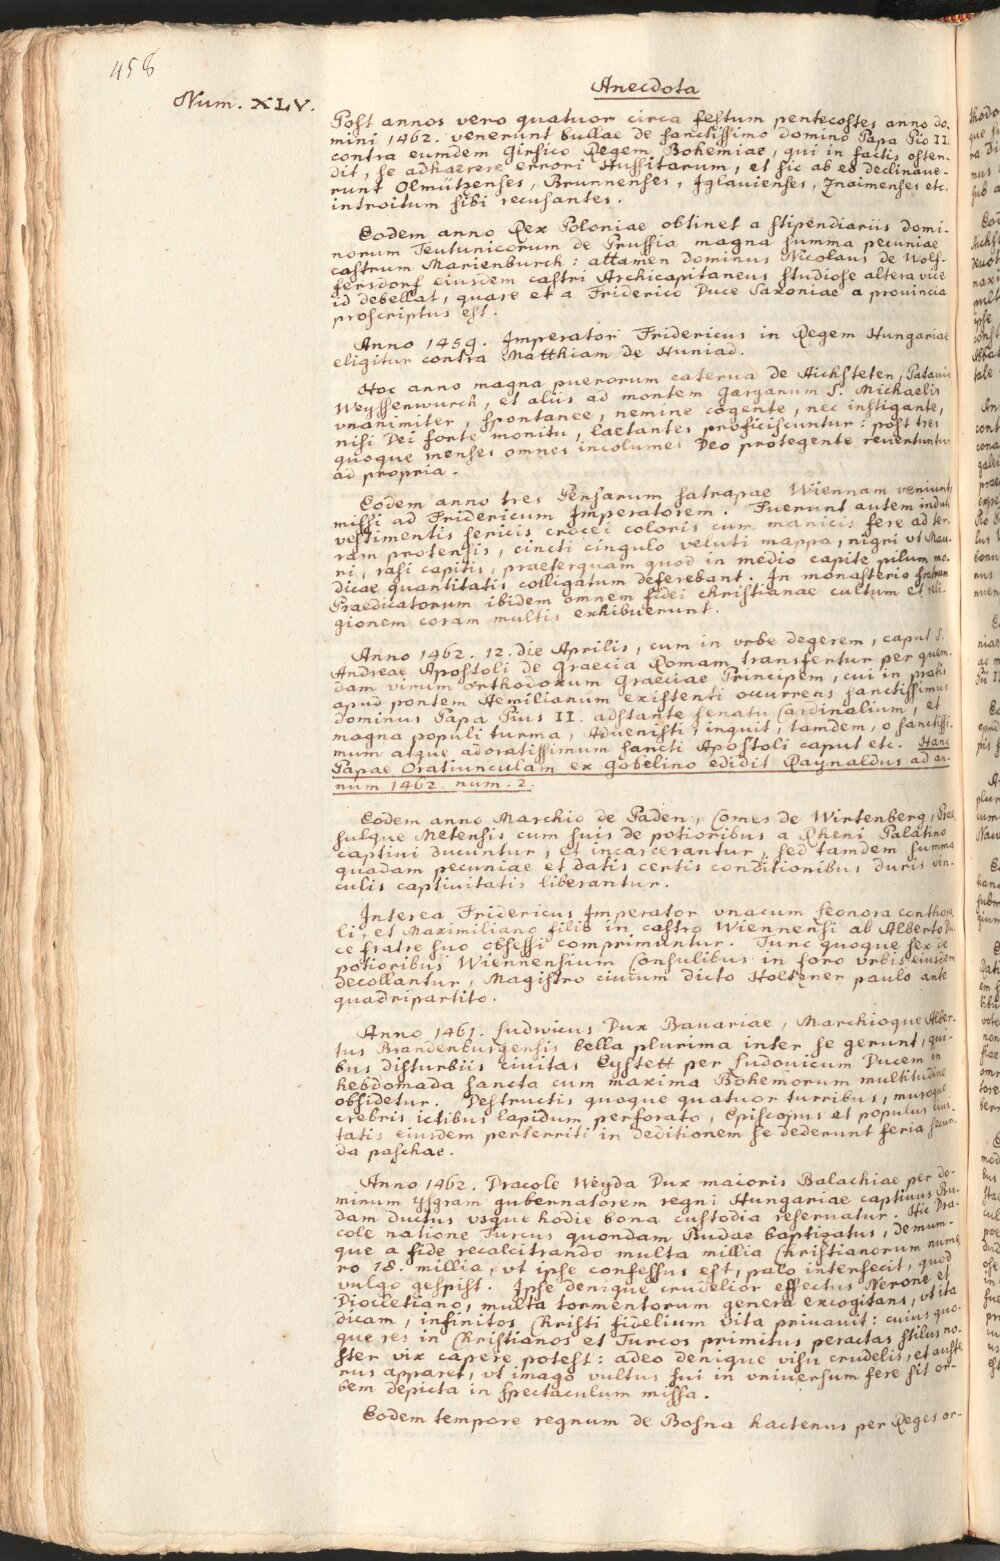 458
Anecdota
Num. XLV.
Post annos vero quatuor circa festum pentecostes anno do-
mini 1462. venerunt bullae de sanctissimo domino Papa Pio II.
contra eumdem Girsico Regem Bohemiae, qui in factis osten-
dit, se adhaerere errori Hussitarum, et sic ab eo declinave-
runt Olmützenses, Brunnenses, Iglavienses, Znaimenses etc.
introitum sibi recusantes.
Eodem anno Rex Poloniae obtinet a stipendiariis domi-
norum Teutunicorum de Prussia magna summa pecuniae
castrum Marienburch: attamen Dominus Nicolaus de Wolf-
fersdorf eiusdem castri Archicapitaneus studiose altera vice
id debellat, quare et a Friderico Duce Saxoniae a provincia
proscriptus est.
Anno 1459. Imperator Fridericus in Regem Hungariae
eligitur contra Matthiam de Huniad.
Hoc anno magna puerorum caterva de Aichsteten, Patavia
Weyssenwurch, et aliis ad montem Garganum S. Michaelis
vnanimiter, spontanee, nemine cogente, nec instigante,
nisi Dei forte monitu, laetantes proficiscuntur: post tres
quoque menses omnes incolumes Deo protegente revertuntur
ad propria.
Eodem anno tres Persarum satrapae Wiennam veniunt,
missi ad Fridericum Imperatorem. Fuerunt autem induti
vestimentis sericis crocei coloris cum manicis fere ad ter-
ram protensis, cincti cingulo veluti mappa, nigri vt Mau-
ri, rasi capitis, praeterquam quod in medio capite pilum mo-
dicae quantitatis colligatum deferebant. In monasterio fratrum
Praedicatorum ibidem omnem fidei christianae cultum et reli-
gionem coram multis exhibuerunt.
Anno 1462. 12. die Aprilis, cum in vrbe degerem, caput S.
Andreae Apostoli de Graecia Romam transfertur per quem-
dam virum orthodoxum Graeciae Principem, cui in pratis
apud pontem Aemilianum existenti occurrens sanctissimus
dominus Papa Pius II. adstante senatu Cardinalium, et
magna populi turma, Advenisti, inquit, tamdem, o sanctissi-
mum atque adoratissimum sancti Apostoli caput etc. Hanc
Papae Oratiunculam ex Gobelino edidit Raynaldus ad an-
num 1462. num. 2.
Eodem anno Marchio de Paden, Comes de Wirtenberg, Prae-
sulque Metensis cum suis de potioribus a Rheni Palatino
captivi ducuntur, et incarcerantur, sed tamdem summa
quadam pecuniae et datis certis conditionibus duris vin-
culis captivitatis liberantur.
Interea Fridericus Imperator vnacum Leonora conthora-
li, et Maximiliano filio in castro Wiennensi ab Alberto Du-
ce fratre suo obsessi comprimuntur. Tunc quoque sex de
potioribus Wiennensium Consulibus in foro vrbis eiusdem
decollantur, Magistro civium dicto Holtzner paulo ante
quadripartito.
Anno 1461. Ludwicus Dux Bavariae, Marchioque Alber-
tus Brandenburgensis bella plurima inter se gerunt, qui-
bus disturbiis civitas Eystett per Ludovicum Ducem in
hebdomada sancta cum maxima Bohemorum multitudine
obsidetur. Destructis quoque quatuor turribus, muroque
crebris ictibus lapidum perforato, Episcopus et populus civi-
tatis eiusdem perterriti in deditionem se dederunt feria secun-
da paschae.
Anno 1462. Dracole Weyda Dux maioris Balachiae per do-
minum Ysgram gubernatorem regni Hungariae captivus Bu-
dam ductus vsque hodie bona custodia reservatur. Hic Dra-
cole natione Turcus quondam Budae baptizatus, demum-
que a fide recalcitrando multa millia Christianorum nume-
ro 18. millia, vt ipse confessus est, palo intersecit, quod
vulgo gespist. Ipse denique crudelior effectus Nerone et
Diocletiano, multa tormentorum genera excogitans, vt ita
dicam, infinitos Christi fidelium vita privavit: cuius quo-
que res in Christianos et Turcos primitus peractas stilus no-
ster vix capere potest: adeo denique visu crudelis, et auste-
rus apparet, vt imago vultus sui in vniversum fere sit or-
bem depicta in spectaculum missa.
Eodem tempore regnum de Bosna hactenus per Reges or-